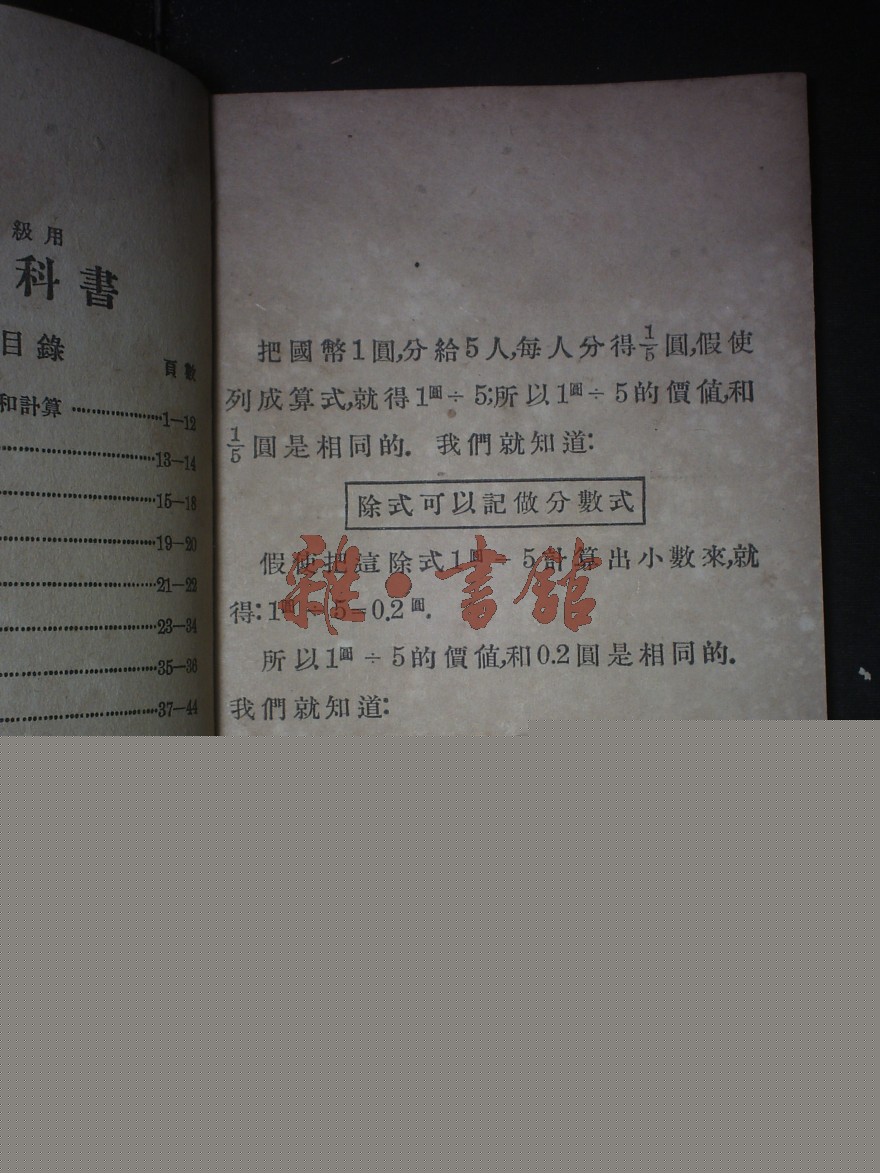 級用
科書
目錄
頁數
和計算 ……………1—12
……………13—14
……………15—18
……………19—20
……………21—22
……………23—34
……………35—36
……………37—44
把國幣1圓,分給5人,每人分得1/5圓,假使
列成算式,就得1圓÷5;所以1圓÷5的價值,和
1/5圓是相同的. 我們就知道:
除式可以記做分數式
假使把這除式1圓÷5計算出小數來,就
得:1圓÷5=0.2圓.
所以1圓÷5的價值,和0.2圓是相同的.
我們就知道:
雜·書館